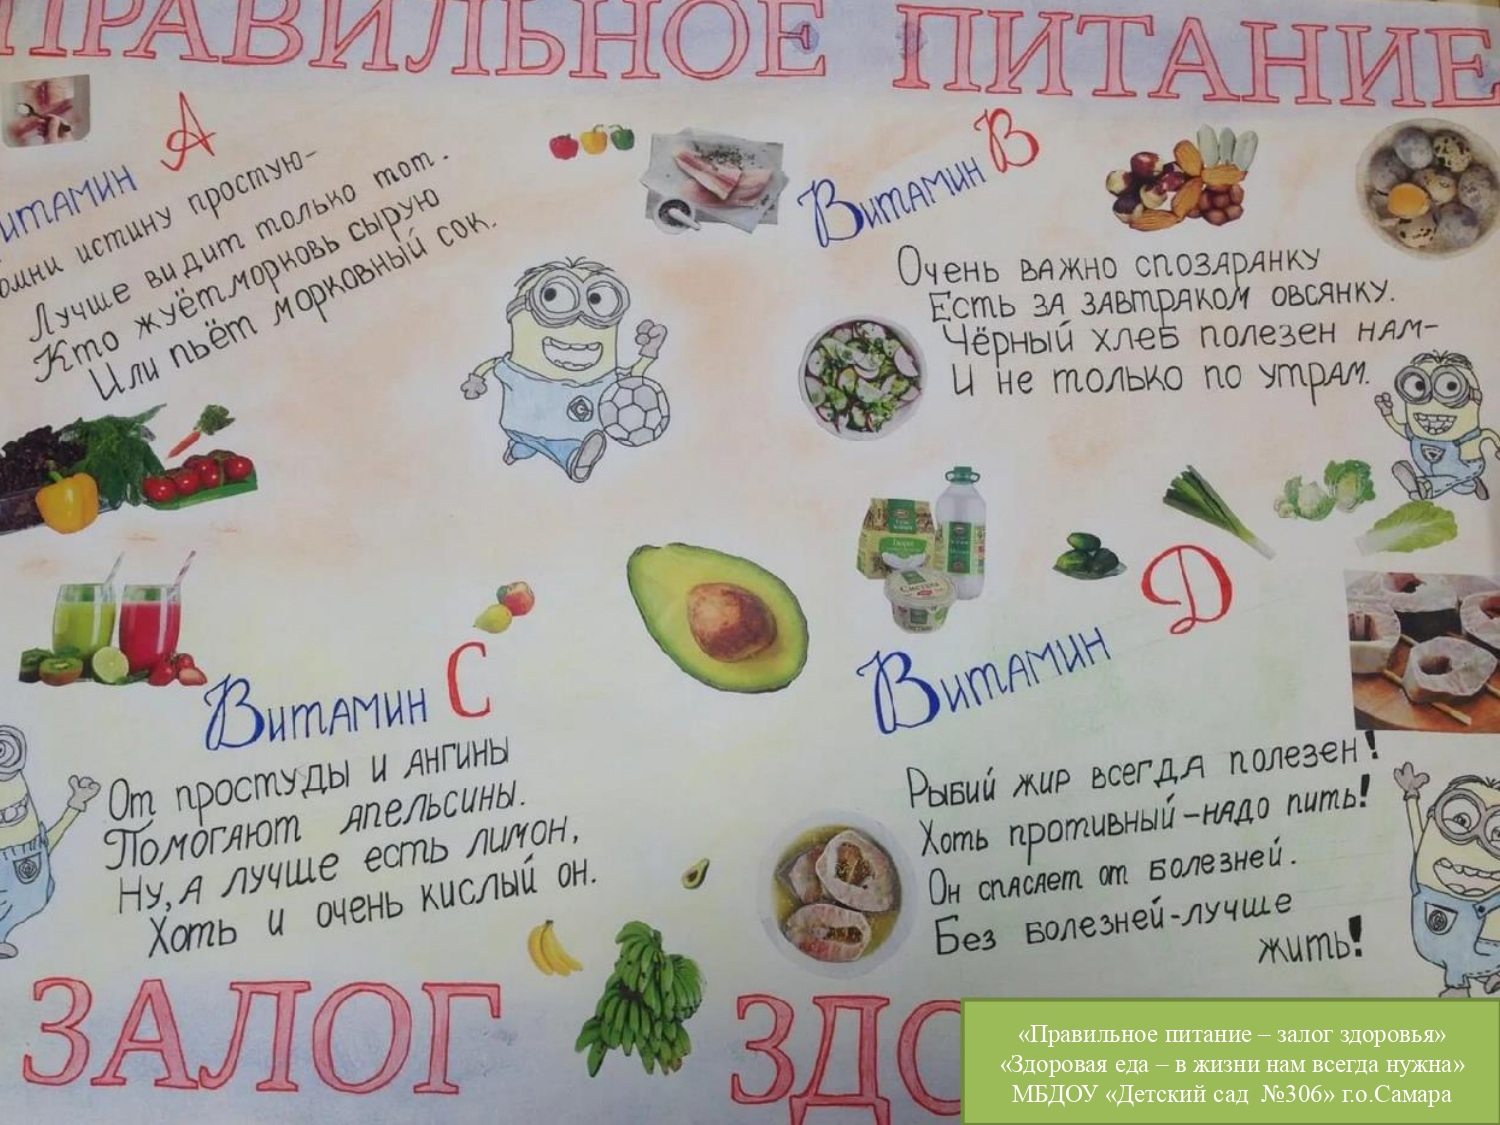 ПРАВИЛЬНОЕ ПИТАНИЕ
итамин А
омни истину простую-
Лучше видит только тот.
Кто жуёт морковь сырую
Или пьёт морковный сок.
Витамин В
Очень важно спозаранку
Есть за завтраком овсянку.
Чёрный хлеб полезен нам-
И не только по утрам.
Витамин С
От простуды и ангины
Помогают апельсины.
Ну, а лучше есть лимон,
Хоть и очень кислый он.
Витамин D
Рыбий жир всегда полезен!
Хоть противный-надо пить!
Он спасает от болезней.
Без болезней-лучше
жить!
ЗАЛОГ ЗДО
«Правильное питание – залог здоровья»
«Здоровая еда – в жизни нам всегда нужна»
МБДОУ «Детский сад №306» г.о.Самара